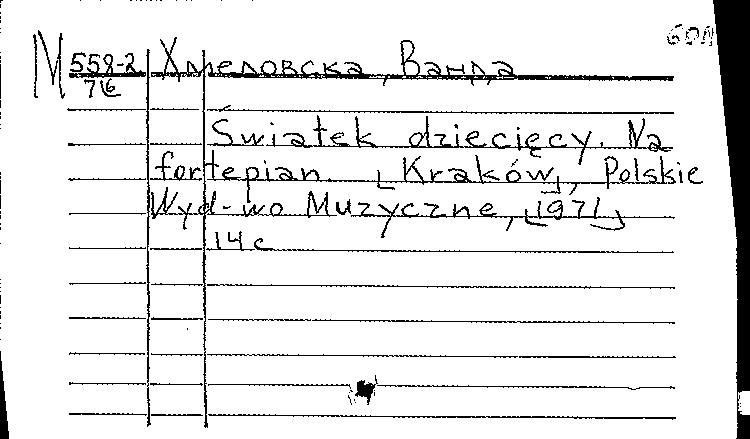 М 558-2 Хмеловска, Ванда
76
Światek dziecięcy. Na
fortepian. [Kraków], Polskie
Wyd-wo Muzyczne, [1971]
14 c